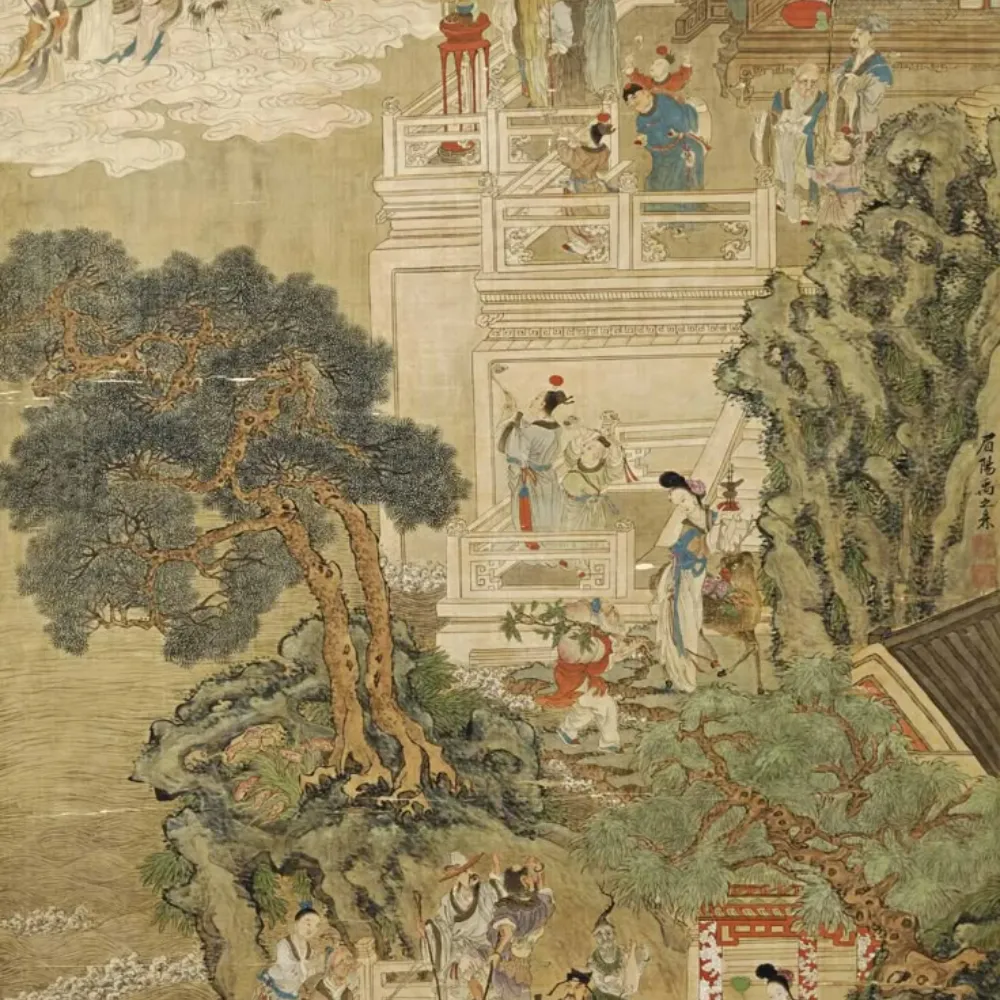 眉陽禹之鼎